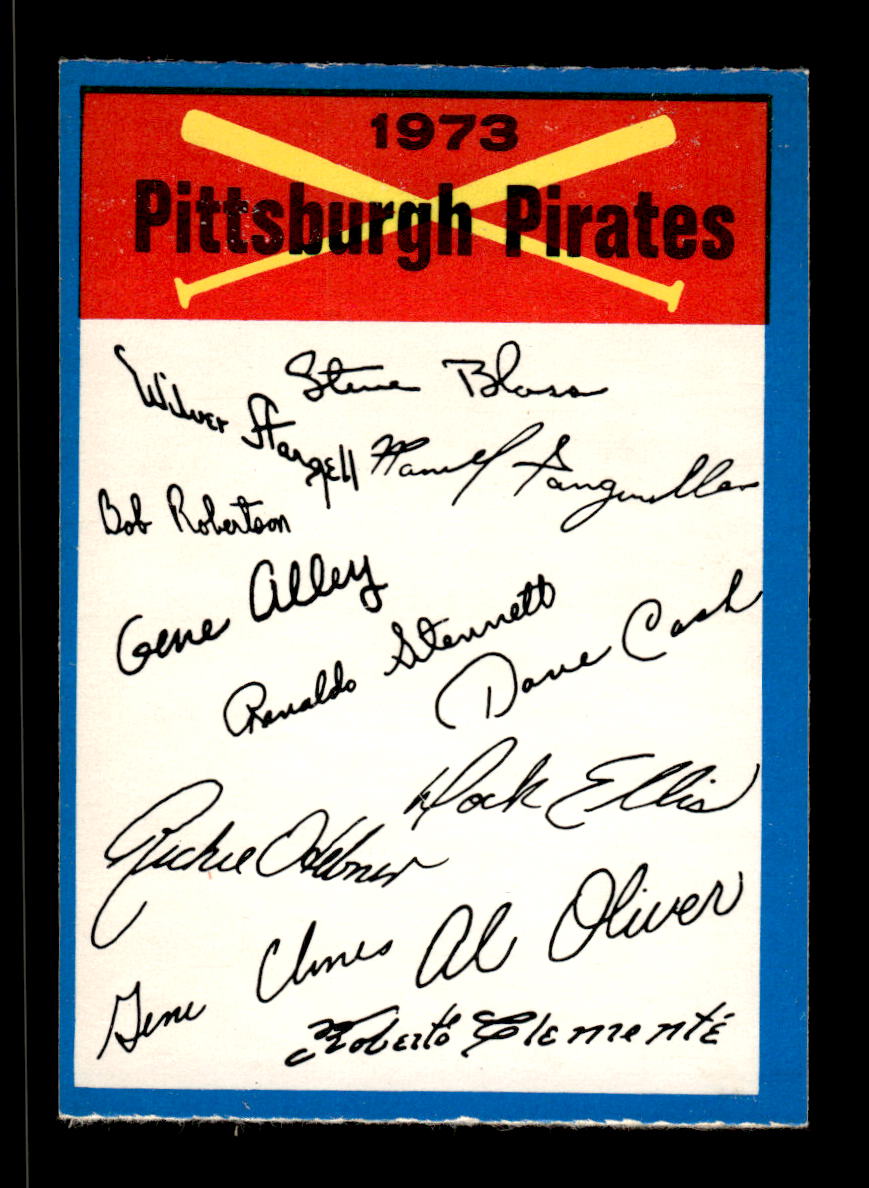 1973
Pittsburgh Pirates
Steve Blass
Wilver Stargell
Manuel Sanguillen
Bob Robertson
Gene Alley
Renaldo Stennett
Dave Cash
Dock Ellis
Richie Hebner
Al Oliver
Gene Clines
Roberto Clemente